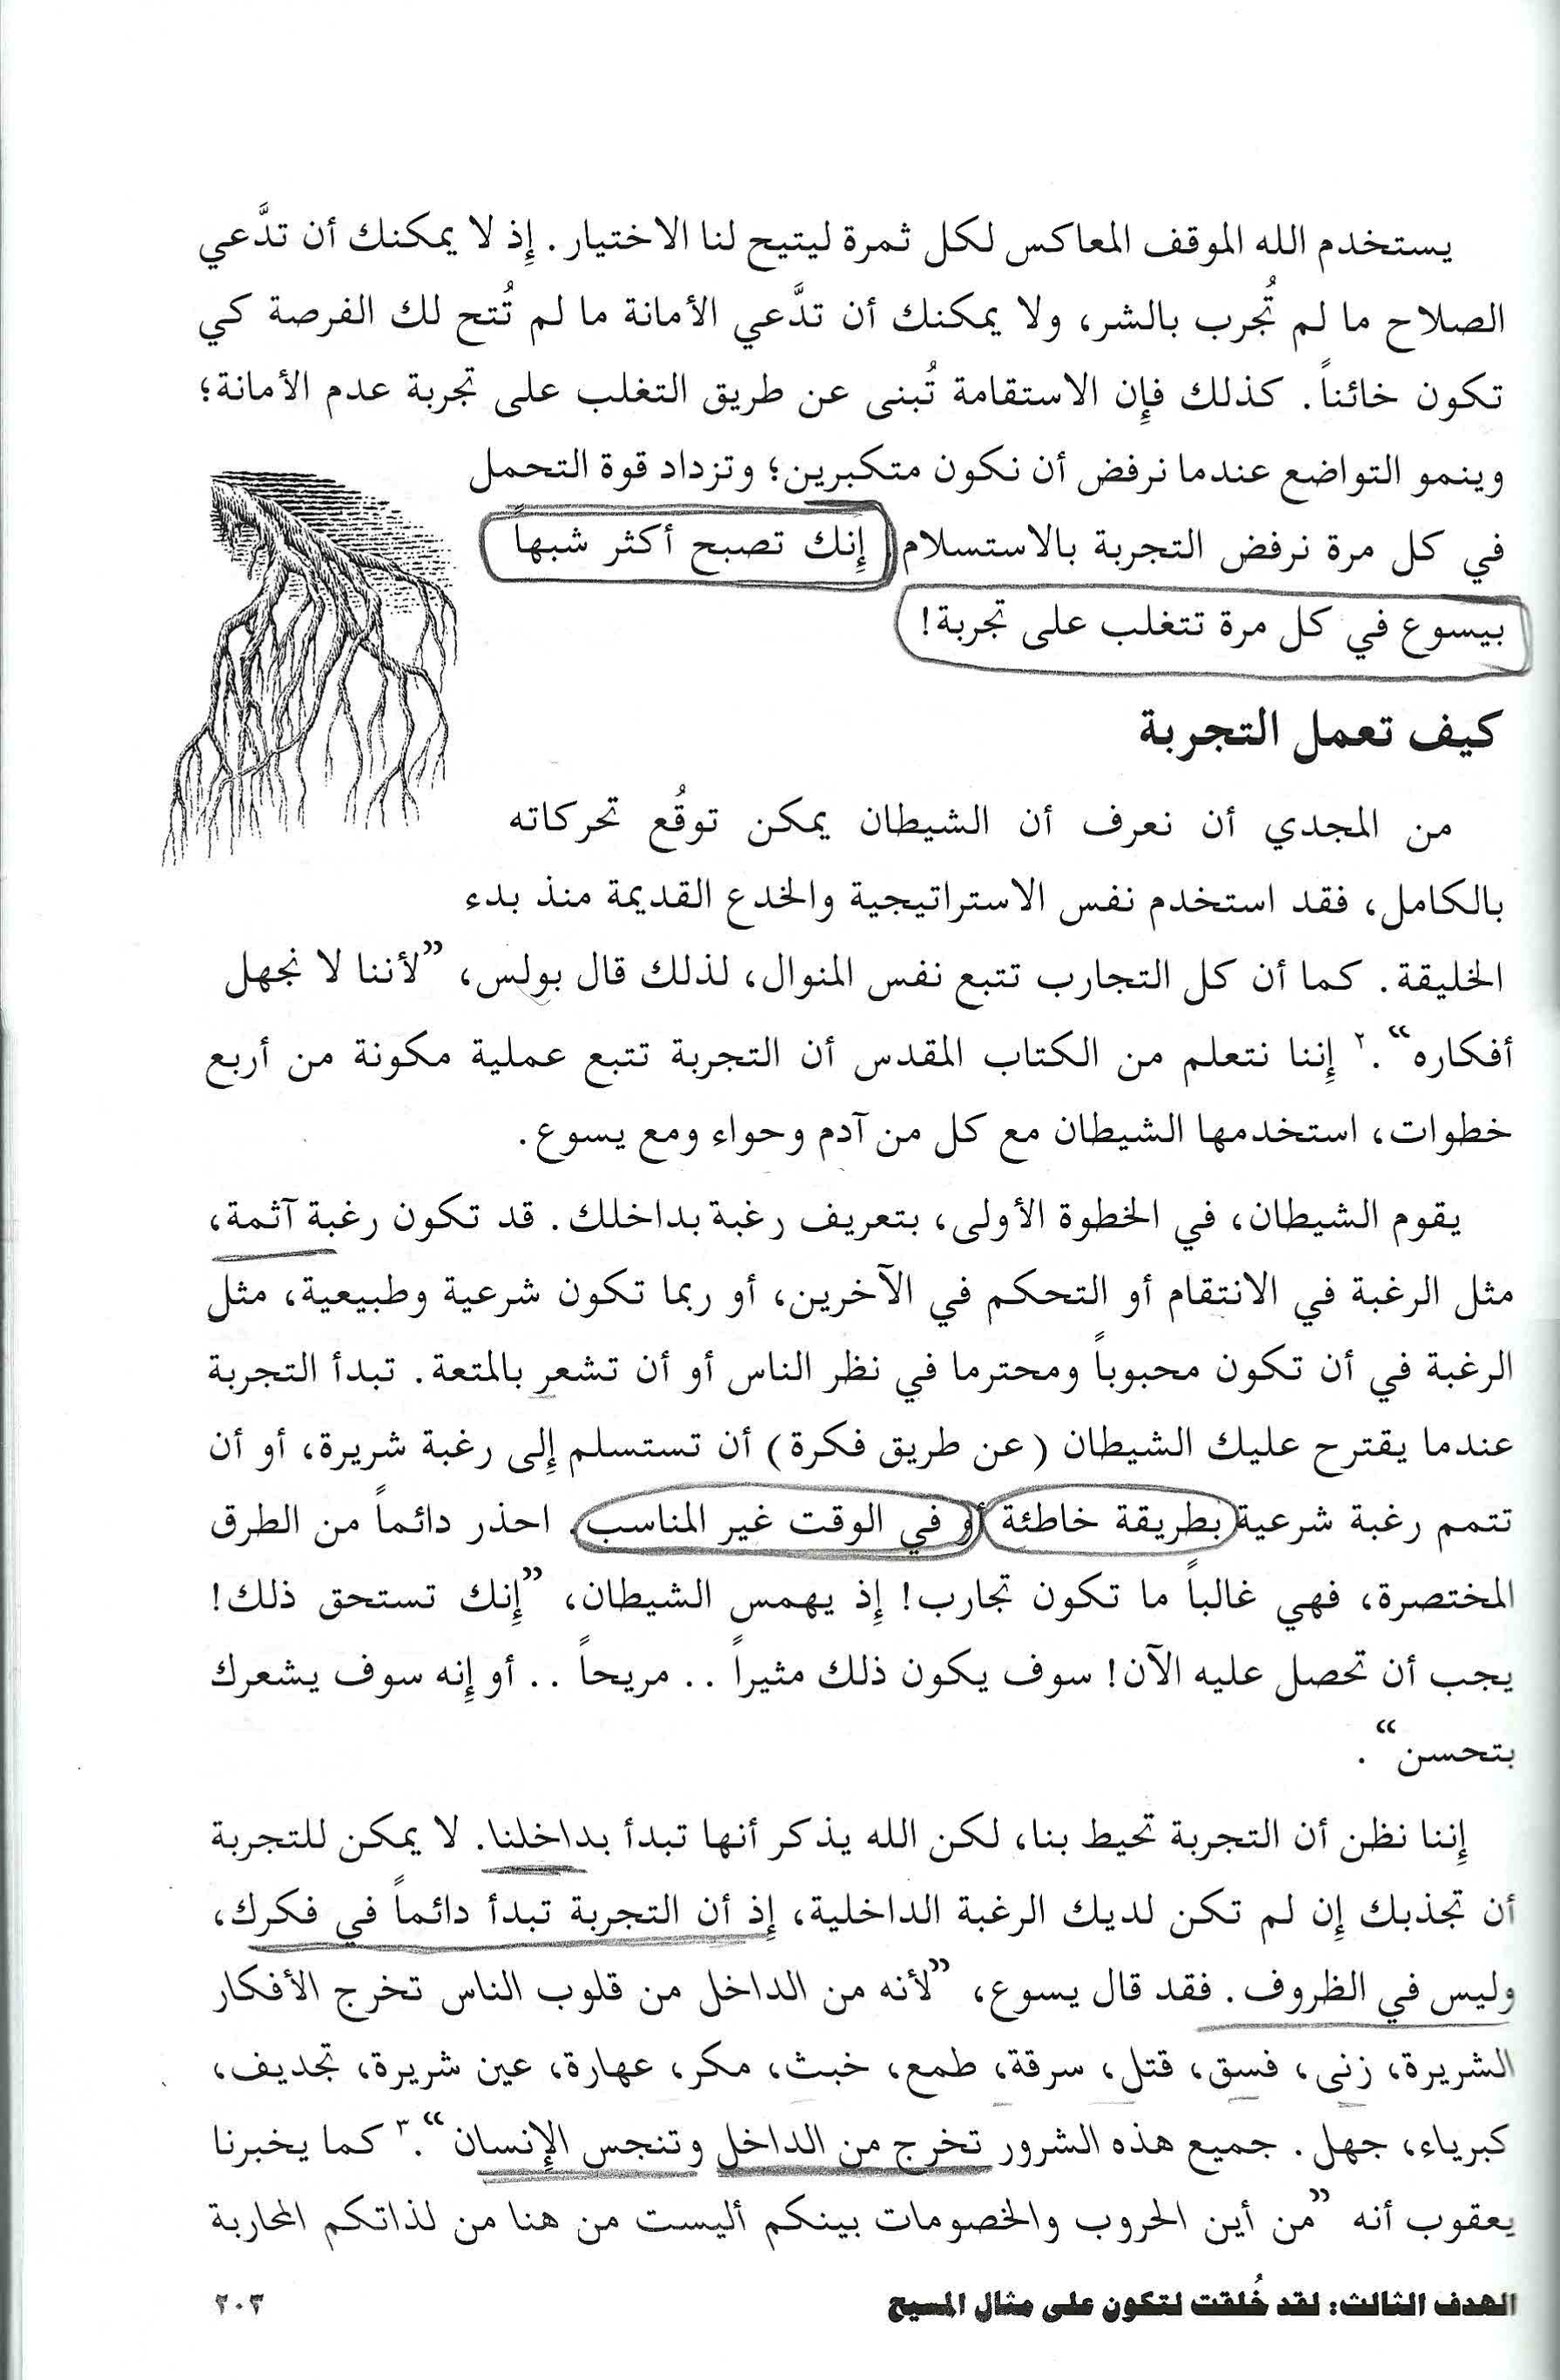 يستخدم الله الموقف المعاكس لكل ثمرة ليتيح لنا الاختيار. إِذ لا يمكنك أن تدَّعي
الصلاح ما لم تُجرب بالشر، ولا يمكنك أن تدَّعي الأمانة ما لم تُتح لك الفرصة كي
تكون خائناً. كذلك فإِن الاستقامة تُبنى عن طريق التغلب على تجربة عدم الأمانة؛
وينمو التواضع عندما نرفض أن نكون متكبرين؛ وتزداد قوة التحمل
في كل مرة نرفض التجربة بالاستسلام. إِنك تصبح أكثر شبهاً
بيسوع في كل مرة تتغلب على تجربة!
كيف تعمل التجربة
من المجدي أن نعرف أن الشيطان يمكن توقُع تحركاته
بالكامل، فقد استخدم نفس الاستراتيجية والخدع القديمة منذ بدء
الخليقة. كما أن كل التجارب تتبع نفس المنوال، لذلك قال بولس، ”لأننا لا نجهل
أفكاره“.٢ إِننا نتعلم من الكتاب المقدس أن التجربة تتبع عملية مكونة من أربع
خطوات، استخدمها الشيطان مع كل من آدم وحواء ومع يسوع.
يقوم الشيطان، في الخطوة الأولى، بتعريف رغبة بداخلك. قد تكون رغبة آثمة،
مثل الرغبة في الانتقام أو التحكم في الآخرين، أو ربما تكون شرعية وطبيعية، مثل
الرغبة في أن تكون محبوباً ومحترما في نظر الناس أو أن تشعر بالمتعة. تبدأ التجربة
عندما يقترح عليك الشيطان (عن طريق فكرة) أن تستسلم إِلى رغبة شريرة، أو أن
تتمم رغبة شرعية بطريقة خاطئة أو في الوقت غير المناسب. احذر دائماً من الطرق
المختصرة، فهي غالباً ما تكون تجارب! إِذ يهمس الشيطان، ”إِنك تستحق ذلك!
يجب أن تحصل عليه الآن! سوف يكون ذلك مثيراً .. مريحاً .. أو إِنه سوف يشعرك
بتحسن“.
إِننا نظن أن التجربة تحيط بنا، لكن الله يذكر أنها تبدأ بداخلنا. لا يمكن للتجربة
أن تجذبك إِن لم تكن لديك الرغبة الداخلية، إِذ أن التجربة تبدأ دائماً في فكرك،
وليس في الظروف. فقد قال يسوع، ”لأنه من الداخل من قلوب الناس تخرج الأفكار
الشريرة، زنى، فسق، قتل، سرقة، طمع، خبث، مكر، عهارة، عين شريرة، تجديف،
كبرياء، جهل. جميع هذه الشرور تخرج من الداخل وتنجس الإِنسان“.٣ كما يخبرنا
يعقوب أنه ”من أين الحروب والخصومات بينكم أليست من هنا من لذاتكم المحاربة
الهدف الثالث: لقد خُلقت لتكون على مثال المسيح ٢٠٣